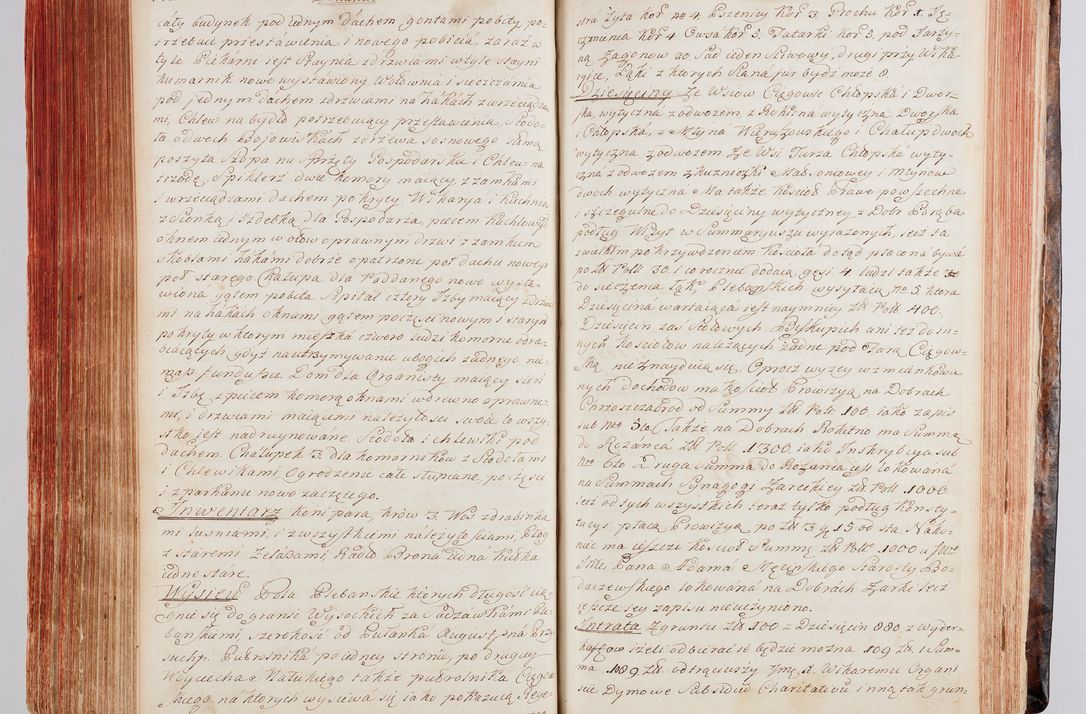 cały budynek pod iednym dachem, gontami pobity, po-
trzebuie przestáwienia i nowego pobicia, zaraz w
tyle Piekarni iest Staynia z drzwiami w tyle stayni
kurnarnik nowo wystáwiony, Wołownia i sieczkarnia
pod jednym dachem z drzwiami na hakach z wrzeciądza
mi, Chlew na bydło potrzebuiący przestawienia, Stodo-
ła o dwoch Boiowiskách z drzewa sosnowego słomą
poszyta, Szopa na Sprzęty Gospodarskie i Chlew na
trzodę, Spiklerz dwie komory maiący z zamkami
i wrzeciądzami dachem pokryty. Wikarya i Kuchnia
z sionką i Izdebką dla Gospodarza, piecem Kachlowym
oknem iednym w ołow oprawnym drzwi z zamkiem
skoblami hakami dobrze opatrzone poł dachu nowego
poł starego. Chałupa dla Poddanego nowo wysta-
wiona gątem pobita. Szpital cztery Izby maiący z drzwia
mi na hakach oknami gątem poczęści nowym i starym
pokryty w ktorym mieszka czworo ludzi komorne odra-
biaiących, gdyż na utrzymywanie ubogich żadnego nie-
masz funduszu. Dom dla Organisty maiący sień
i Izbę z piecem komorą oknami w drewno oprawne-
mi, i drzwiami maiącemi należytości swoie to wszy-
stko iest nadruynowane Stodoła i chlewik pod
dachem Chałupek 3. dla komornikow z Stodołami
i Chlewikami Ogrodzenie całe stupiane po części
i z parkanu nowo zaczętego.
Inwentarz koni para, krow 3. Woz z drabinka
mi, z lusniami, i z wszystkiemi należytosciami, Pług
z staremi Zelazami Radło Brona iedna Kulka
iedne stáre.
Wysiew Pola Plebanskie ktorych długość cią-
gnie się do granic Wysockich za Sadzáwkámi Ple-
bańskiemi szerokość od Pułanka Augustyna Prze
suchy. Pubrosnika po iedney stronie, po drugiey
Woyciecha Watulskiego także pubrosnika Cięgo-
skiego na ktorych wysiewa się iako pokazuią Rege-
stra Żyta kor. nº 4. Pszenicy Kor. 3. Grochu Kor. 1. Ję-
czmienia Kor. 4 Owsa kor. 8. Tatarki kor. 3. pod Jarzy-
ną Zagonow 20 Sad ieden Niwowy, drugi przy Wika-
ryice, Łąki z ktorych Siana fur bydź może 8.
Dziesięciny Ze Wsiow Cięgowic Chłopska i Dwor-
ska, wytyczna z odwozem z Rokitna wytyczna Dworska
i Chłopska, z Młyna Wierzowskiego i Chałup dwoch
wytyczna z odwozem Ze Wsi Turza Chłopska wyty-
czna z odwozem z Kuzniczki Masłonowey i młynow
dwoch wytyczna Ma także Kosciół Prawo powszechne
i szczegulne do Dziesięciny wytyczney z Dobr Poręba
podług Wizyt w Summarjuszu wyrażonych, lecz ta
z wielkim pokrzywdzeniem Kosciołá dotąd płacona bywa
po Zł Pols: 30. i corocznie dodaią gęsi 4 ludzi także
do sieczenia Łąk Plebanskich wysyłaią nº 5. ktora
Dziesięcina wartaiąca iest naymniey Zł Pols: 400.
Dziesięcin zas Stołowych Biskupich ani też do in-
nych Kosciołow nalezących żadne pod Farą Cięgow-
ską nieznayduią się. Oprocz wyżey wzmiankowa
nych dochodow ma Koscioł Prowizyą na Dobrach
Chrószczobród od Summy Zł Pols: 100. iako zapis
sub nro 5to. Także na Dobrach Rokitno ma Summę
do Rożańca Zł Pols: 1300. iako Inskrybcya sub
nro 6to Druga Summa do Rożańca iest lokowana
na Summach Synagogi Zareckiey Zł Pols: 1000.
lecz od tych wszystkich teraz tylko podług Konsty-
tucyi płacą Prowizyą po Zł 3 g 15 od sta. Nako-
niec ma ieszcze Koscioł Summę Zł Pols: 1000 u JWo
Imci Pana Adama Męcińskiego Starosty Bo-
daczewskiego lokowáná na Dobrách Zarki lecz
ieszcze iey zapisu nieuczyniono.
Intrata Z gruntu Zł 100 z Dziesięcin 880. z Wyder-
kaffow ieżeli odbierać ie będzie można 109 Zł. i Sum-
ma 1089 Zł. odtrąciwszy z niey d. Wikaremu Organi
scie Dymowe Subsidium Charitativu i inną tak grun-